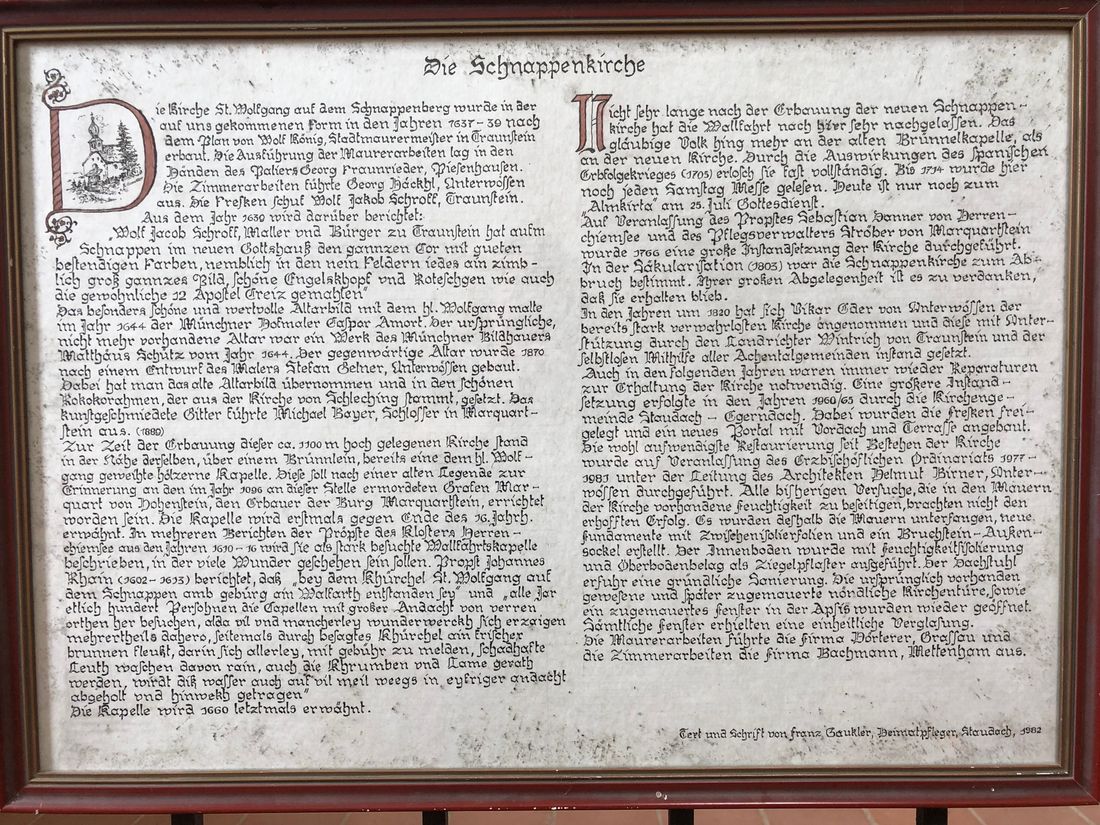 Die Schnappenkirche
Die Kirche St. Wolfgang auf dem Schnappenberg wurde in der
auf uns gekommenen Form in den Jahren 1637-39 nach
dem Plan von Wolf König, Stadtmaurermeister in Traunstein
erbaut. Die Ausführung der Maurerarbeiten lag in den
Händen des Paliers Georg Fraunrieder, Piesenhausen.
Die Zimmerarbeiten führte Georg Häckhl, Unterwössen
aus. Die Fresken schuf Wolf Jakob Schroff, Traunstein.
Aus dem Jahr 1639 wird darüber berichtet:
„Wolf Jacob Schroff, Maller vnd Bürger zu Traunstein hat aufm
Schnappen im neuen Gottshauß den gannzen Cor mit gueten
bestendigen Farben, nemblich in den nein Feldern iedes ain zimb-
lich groß gannzes Bild, schöne Engelskhopf vnd Roteschgen wie auch
die gewohnliche 12 Apostel Creiz gemahlen"
Das besonders schöne und wertvolle Altarbild mit dem hl. Wolfgang malte
im Jahr 1644 der Münchner Hofmaler Caspar Amort. Der ursprüngliche,
nicht mehr vorhandene Altar war ein Werk des Münchner Bildhauers
Matthäus Schütz vom Jahr 1644. Der gegenwärtige Altar wurde 1870
nach einem Entwurf des Malers Stefan Gefner, Unterwössen gebaut.
Dabei hat man das alte Altarbild übernommen und in den schönen
Rokokorahmen, der aus der Kirche von Schleching stammt, gesetzt. Das
kunstgeschmiedete Gitter führte Michael Bayer, Schlosser in Marquart-
stein aus. (1889)
Zur Zeit der Erbauung dieser ca. 1100 m hoch gelegenen Kirche stand
in der Nähe derselben, über einem Brünnlein, bereits eine dem hl. Wolf-
gang geweihte hölzerne Kapelle. Diese soll nach einer alten Legende zur
Erinnerung an den im Jahr 1096 an dieser Stelle ermordeten Grafen Mar-
quart von Hohenstein, den Erbauer der Burg Marquartstein, errichtet
worden sein. Die Kapelle wird erstmals gegen Ende des 16. Jahrh.
erwähnt. In mehreren Berichten der Pröpste des Klosters Herren-
chiemsee aus den Jahren 1610-16 wird sie als stark besuchte Wallfahrtskapelle
beschrieben, in der viele Wunder geschehen sein sollen. Propst Johannes
Khain (1602-1613) berichtet, daß „bey dem Khürchel St. Wolfgang auf
dem Schnappen amb gebürg ain Walfarth entstanden sey" und „alle Jar
etlich hundert Persohnen die Capellen mit großer Andacht von verren
orthen her besuchen, alda vil vnd mancherley wunderwerckh sich erzaigen
mehrertheils dahero, seitemals durch besagtes Khürchel ain frischer
brunnen fleußt, darin sich allerley, mit gebühr zu melden, schadhafte
Leuth waschen davon rain, auch die Khrumben vnd Lame gerath
werden, wirdt diß wasser auch auf vil meil weegs in eyfriger andacht
abgeholt vnd hinwekh getragen"
Die Kapelle wird 1660 letztmals erwähnt.
Nicht sehr lange nach der Erbauung der neuen Schnappen-
kirche hat die Wallfahrt nach hier sehr nachgelassen. Das
gläubige Volk hing mehr an der alten Brünnelkapelle, als
an der neuen Kirche. Durch die Auswirkungen des spanischen
Erbfolgekrieges (1705) erlosch sie fast vollständig. Bis 1714 wurde hier
noch jeden Samstag Messe gelesen. Heute ist nur noch zum
"Almkirta" am 25. Juli Gottesdienst.
Auf Veranlassung des Propstes Sebastian Danner von Herren-
chiemsee und des Pflegsverwalters Ströber von Marquartstein
wurde 1766 eine große Instandsetzung der Kirche durchgeführt.
In der Säkularisation (1803) war die Schnappenkirche zum Ab-
bruch bestimmt. Ihrer großen Abgelegenheit ist es zu verdanken,
daß sie erhalten blieb.
In den Jahren um 1820 hat sich Vikar Eder von Unterwössen der
bereits stark verwahrlosten Kirche angenommen und diese mit Unter-
stützung durch den Landrichter Wintrich von Traunstein und der
selbstlosen Mithilfe aller Achentalgemeinden instand gesetzt.
Auch in den folgenden Jahren waren immer wieder Reparaturen
zur Erhaltung der Kirche notwendig. Eine größere Instand-
setzung erfolgte in den Jahren 1960/65 durch die Kirchenge-
meinde Staudach - Egerndach. Dabei wurden die Fresken frei-
gelegt und ein neues Portal mit Vordach und Terrasse angebaut.
Die wohl aufwendigste Restaurierung seit Bestehen der Kirche
wurde auf Veranlassung des Erzbischöflichen Ordinariats 1977-
1981 unter der Leitung des Architekten Helmut Birner, Unter-
wössen durchgeführt. Alle bisherigen Versuche, die in den Mauern
der Kirche vorhandene Feuchtigkeit zu beseitigen, brachten nicht den
erhofften Erfolg. Es wurden deshalb die Mauern unterfangen, neue
Fundamente mit Zwischenisolierfolien und ein Bruchstein-Außen-
sockel erstellt. Der Innenboden wurde mit Feuchtigkeitisolierung
und Oberbodenbelag als Ziegelpflaster ausgeführt. Der Dachstuhl
erfuhr eine gründliche Sanierung. Die ursprünglich vorhanden
gewesene und später zugemauerte nördliche Kirchentüre, sowie
ein zugemauertes Fenster in der Apsis wurden wieder geöffnet.
Sämtliche Fenster erhielten eine einheitliche Verglasung.
Die Maurerarbeiten führte die Firma Dörterer, Grassau und
die Zimmerarbeiten die Firma Bachmann, Mettenham aus.
Text und Schrift von Franz Gaukler, Heimatpfleger, Staudach, 1982